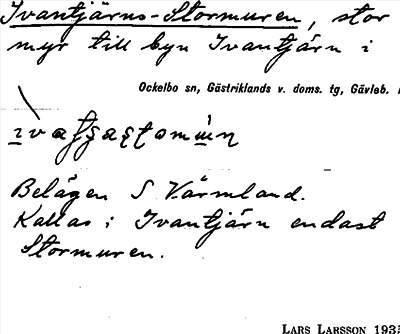 Ivantjärns-Stormuren, stor
myr till byn Ivantjärn i
Ockelbo sn, Gästriklands v. doms. tg, Gävleb.
Belägen S Värmland.
Kallas i Ivantjärn endast
Stormuren.
LARS LARSSON 1935